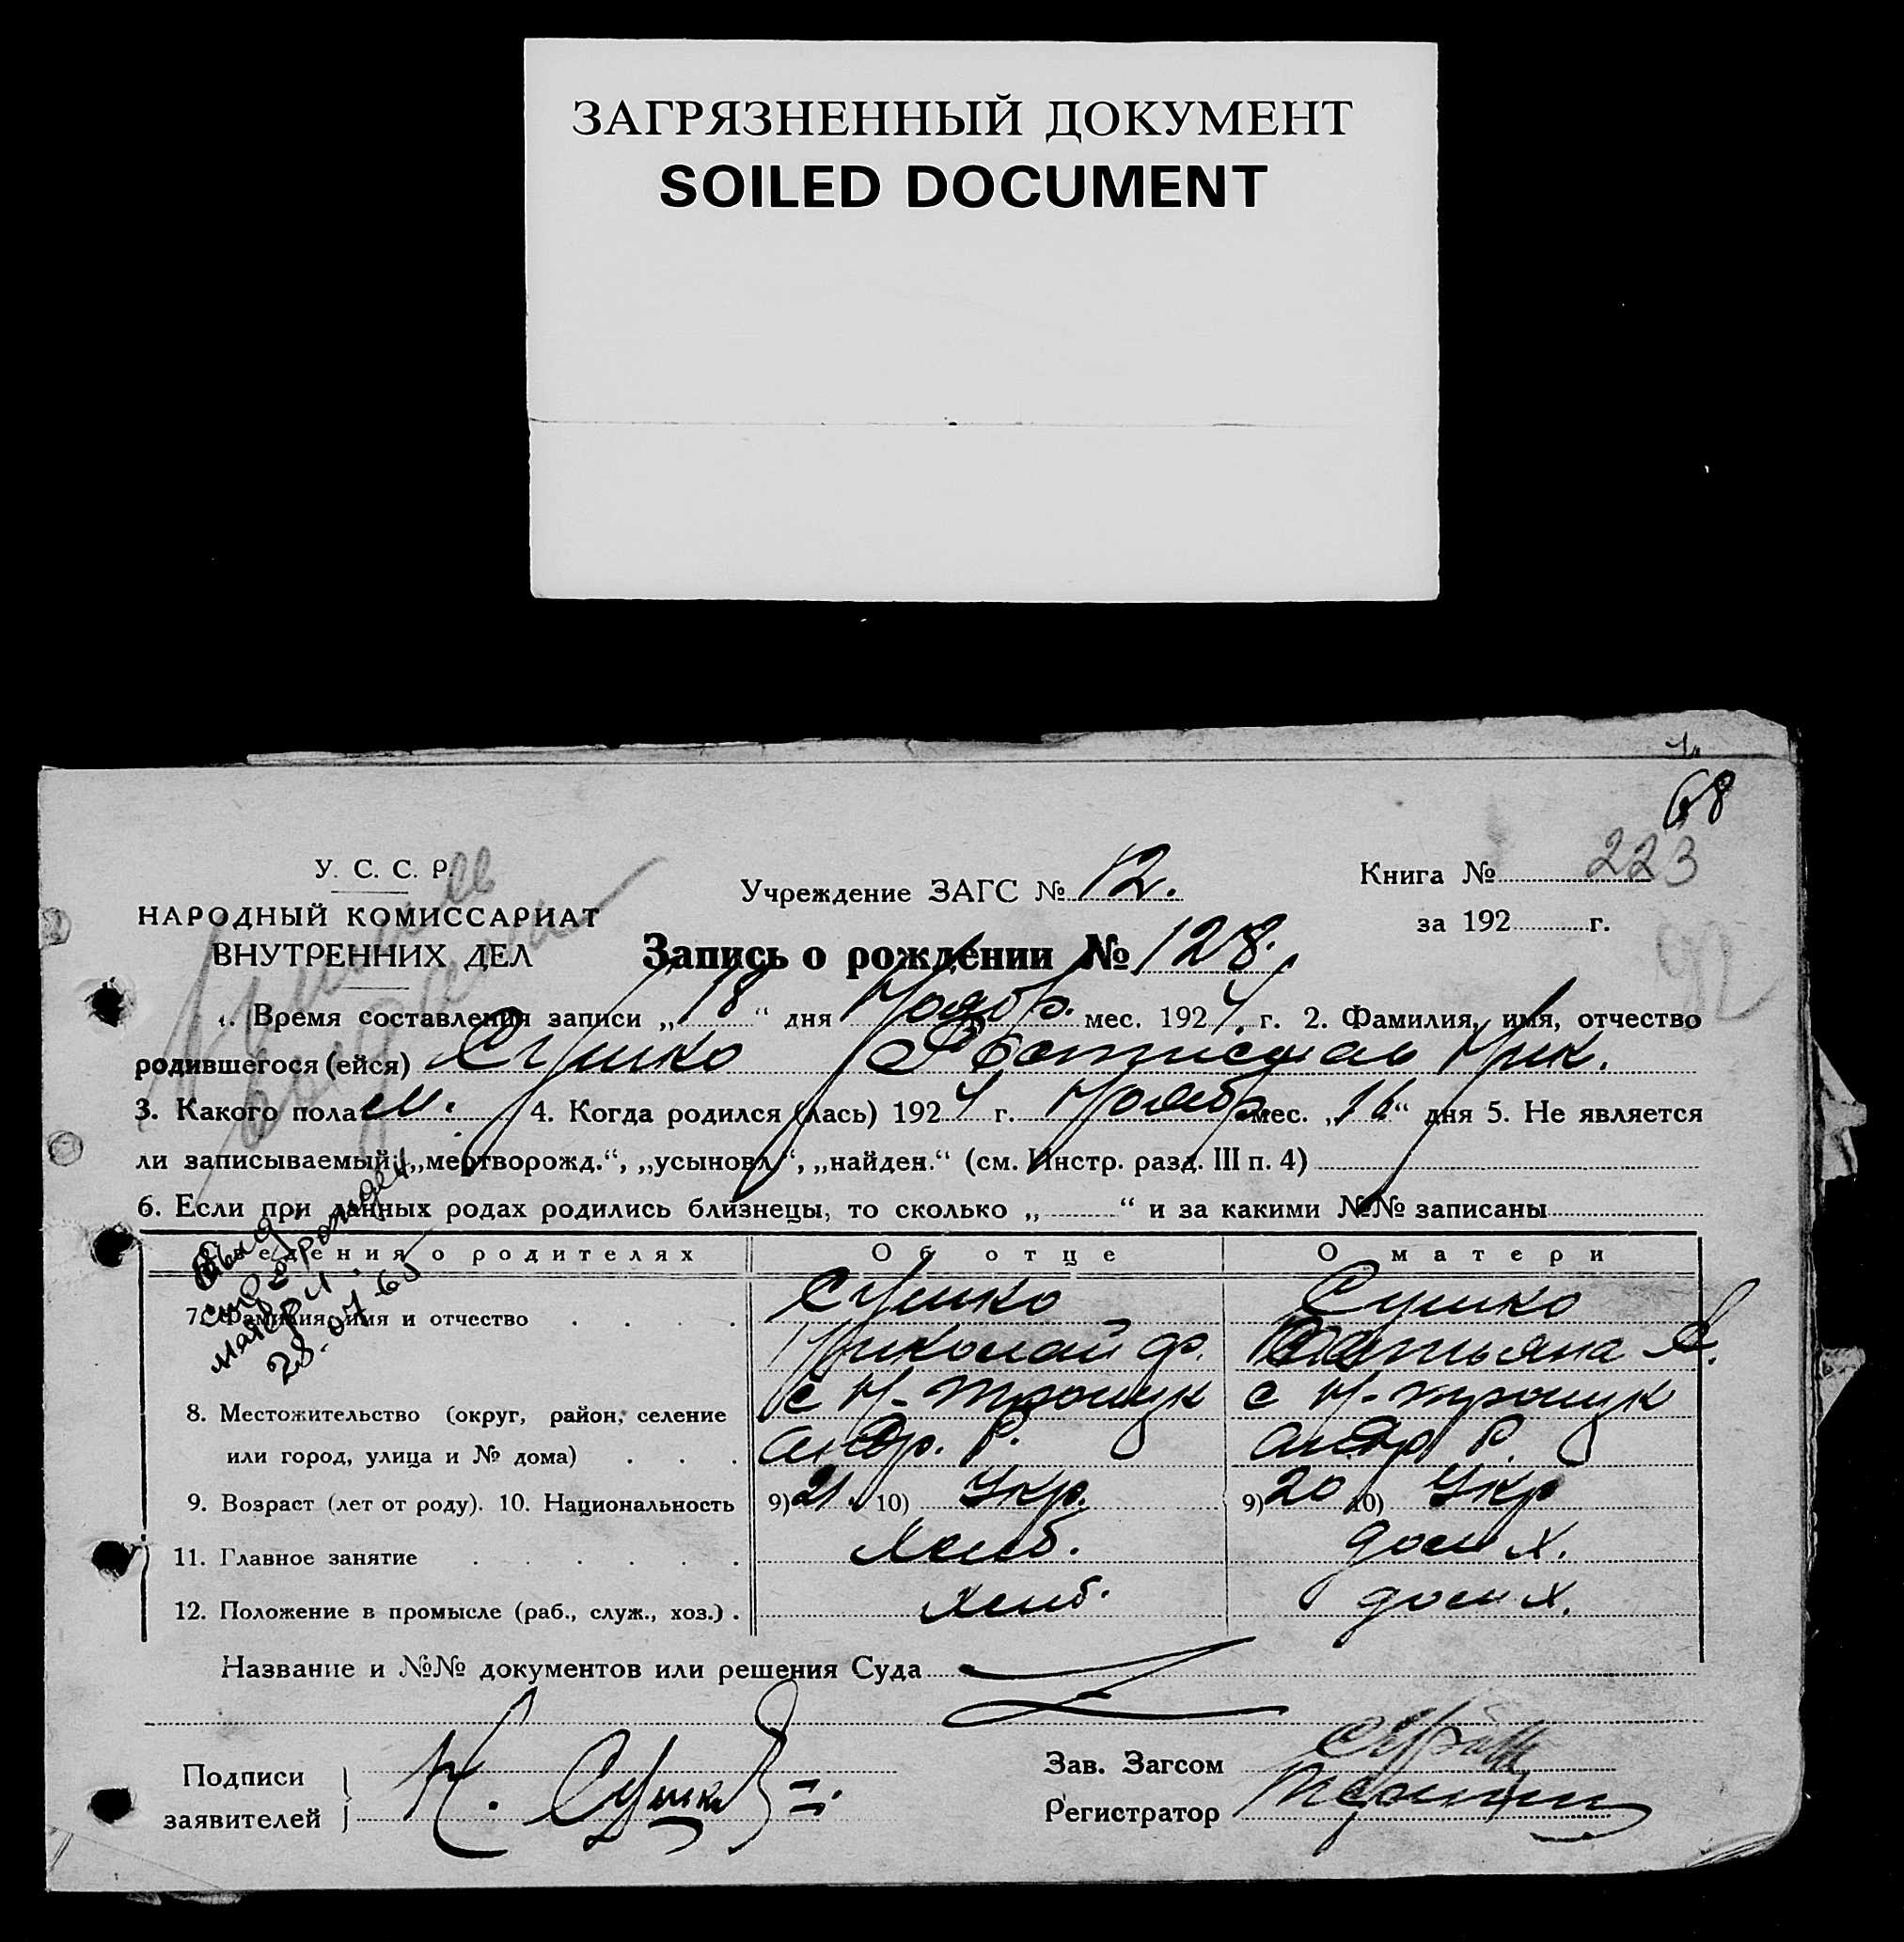 ЗАГРЯЗНЕННЫЙ ДОКУМЕНТ
SOILED DOCUMENT
68
У. С. С. Р.
НАРОДНЫЙ КОМИССАРИАТ
ВНУТРЕННИХ ДЕЛ
Учреждение ЗАГС № 12.
Книга № 223
за 192 г.
92
Запись о рождении № 128.
1. Время составления записи „18“ дня Ноябр. мес. 1924 г. 2. Фамилия, имя, отчество
родившегося (ейся) Сушко Ростислав Ник.
3. Какого пола м. 4. Когда родился (лась) 1924 г. Ноябр мес. „16“ дня 5. Не является
ли записываемый: „мертворожд.“, „усыновл.“, „найден.“ (см. Инстр. разд. III п. 4)
6. Если при данных родах родились близнецы, то сколько „ “ и за какими №№ записаны
Сведения о родителях Об отце О матери
7. Фамилия, имя и отчество Сушко Сушко
Николай Ф. Татьяна
8. Местожительство (округ, район, селение с Н- с Н-
или город, улица и № дома) Андр. Р. Андр Р.
9. Возраст (лет от роду). 10. Национальность 9) 21. 10) Укр. 9) 20 10) Укр
11. Главное занятие Хлиб. дом х.
12. Положение в промысле (раб., служ., хоз.) . хлиб. дом х.
Название и №№ документов или решения Суда
Подписи
заявителей Н. Сушко
Зав. Загсом
Регистратор